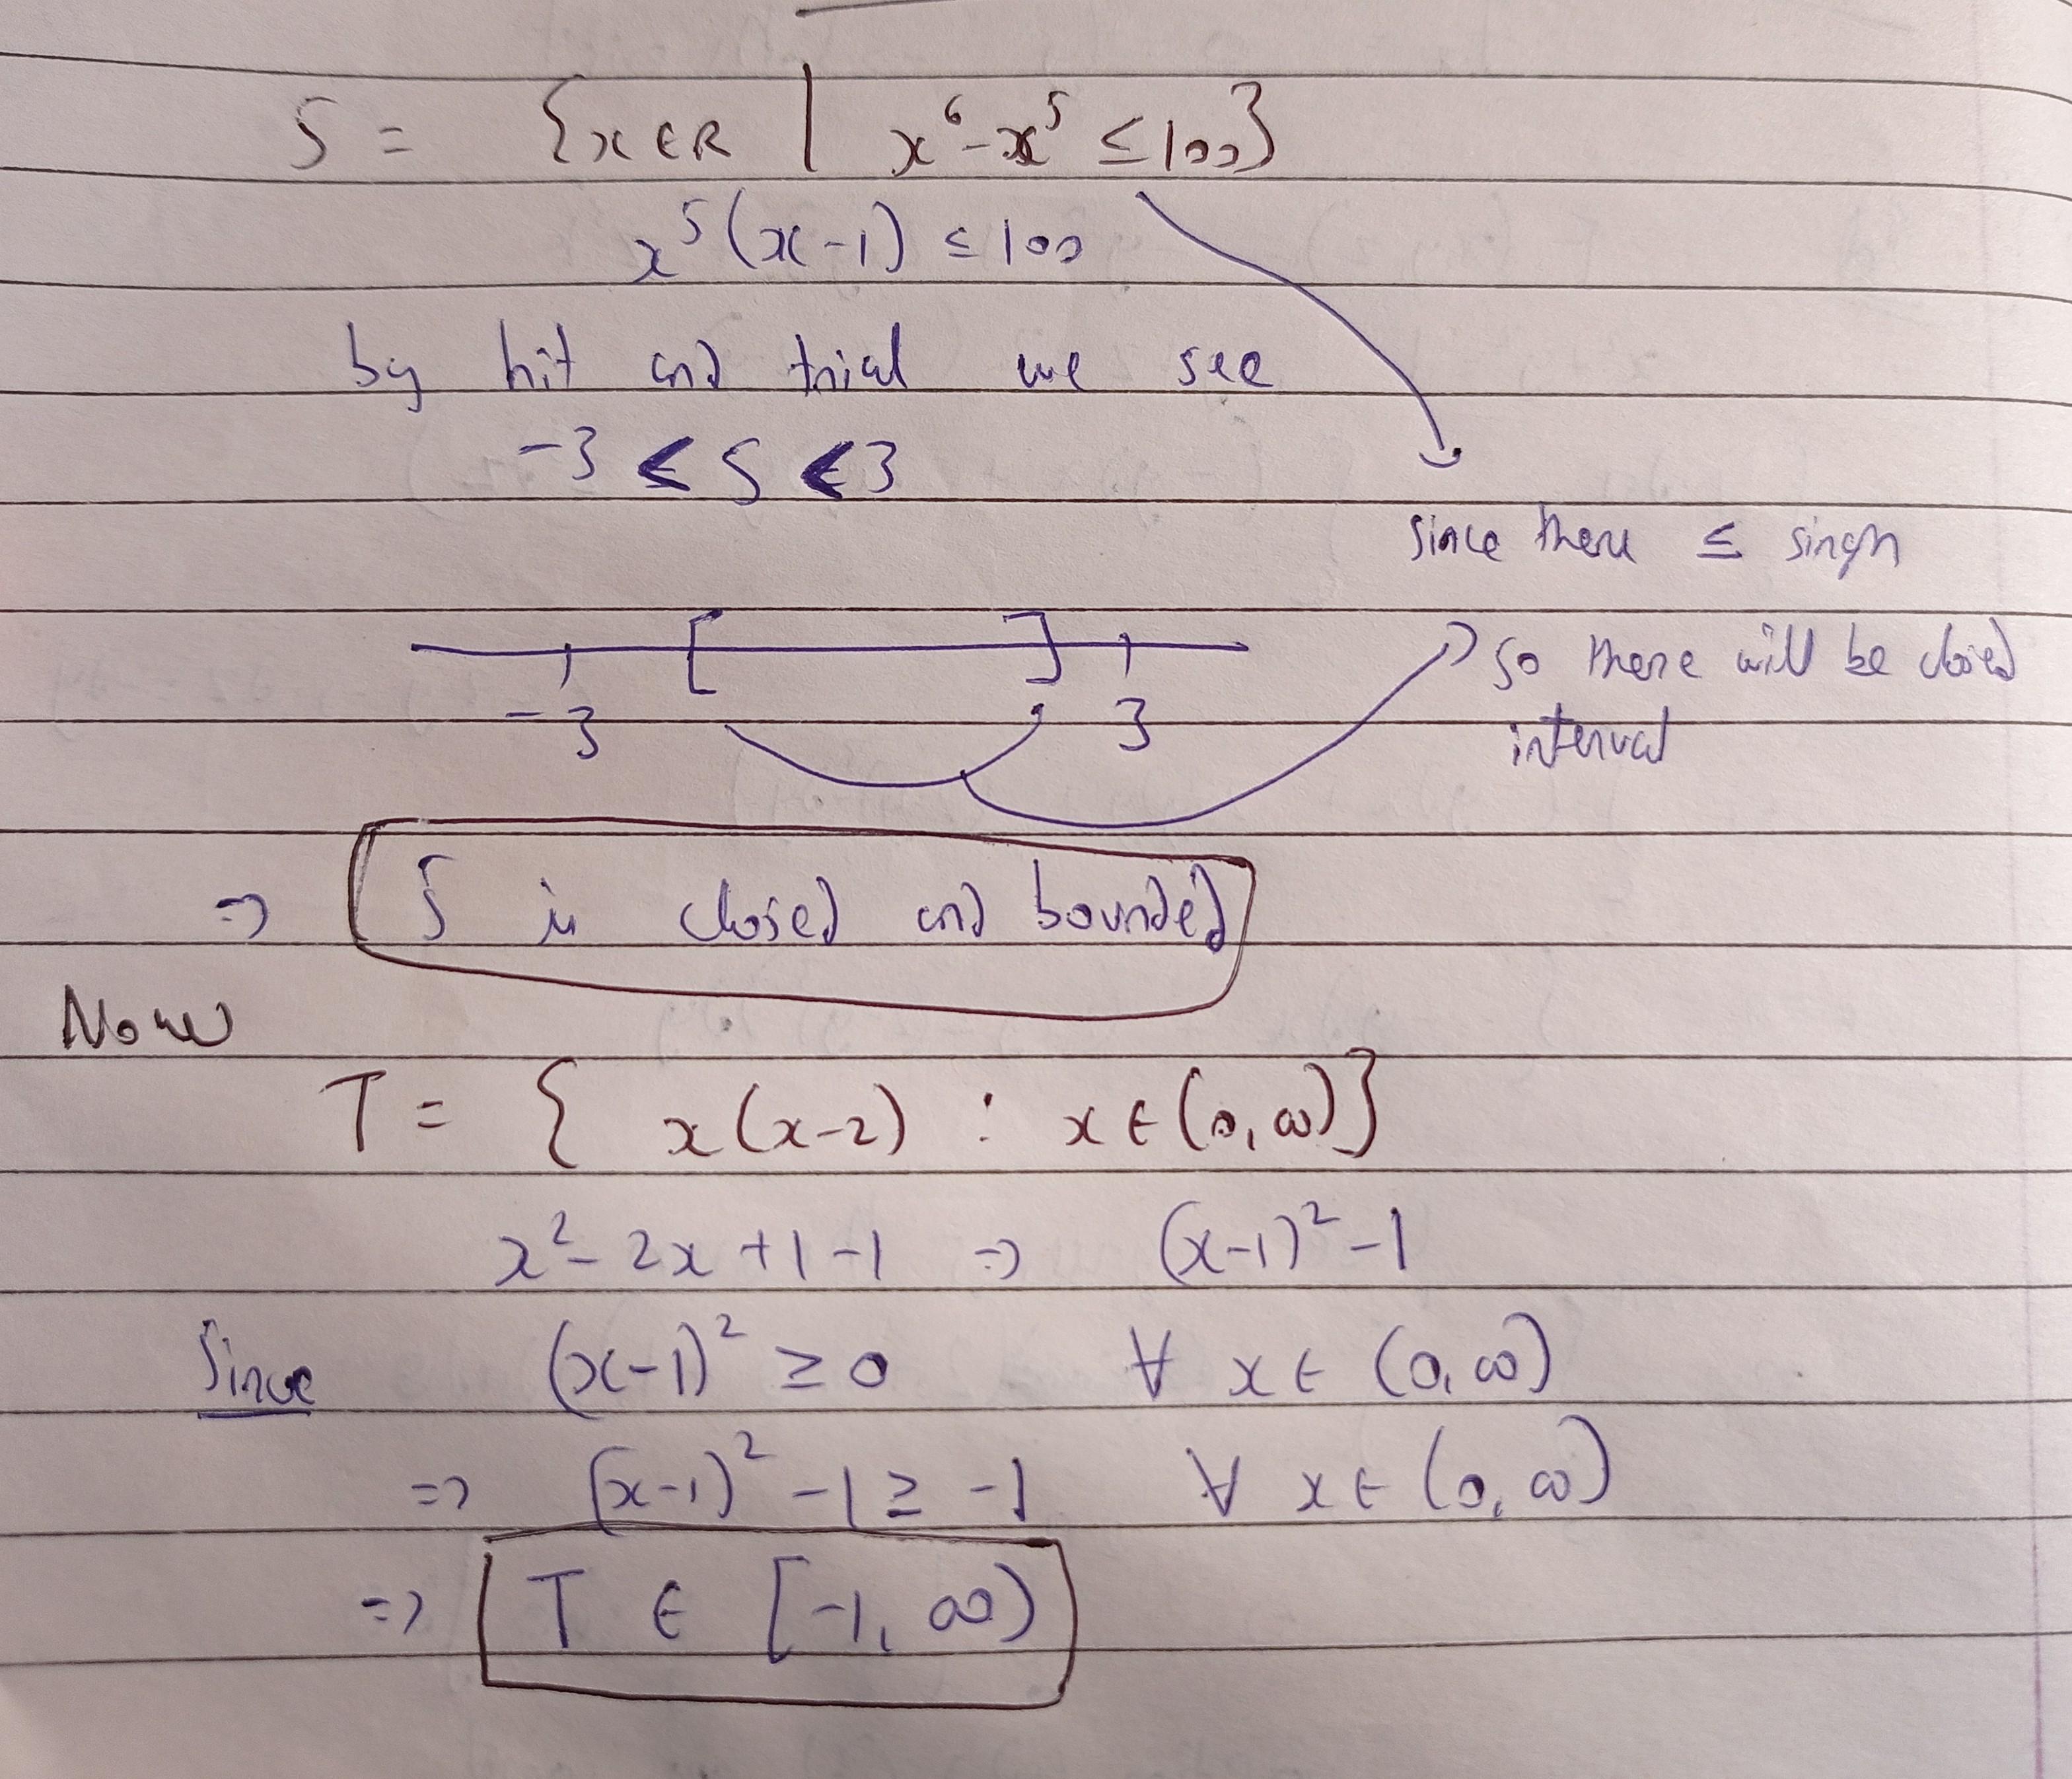 S = {x ∈ R | x⁶-x⁵ ≤ 100}
x⁵(x-1) ≤ 100
by hit and trial we see
-3 < S < 3
since there ≤ singn
so there will be closed
interval
-3 [ ] 3
=> S is closed and bounded
Now
T = { x(x-2) : x ∈ (0, ∞)}
x² - 2x + 1 - 1 => (x-1)² - 1
Since (x-1)² ≥ 0 ∀ x ∈ (0, ∞)
=> (x-1)² - 1 ≥ -1 ∀ x ∈ (0, ∞)
=> T ∈ [-1, ∞)